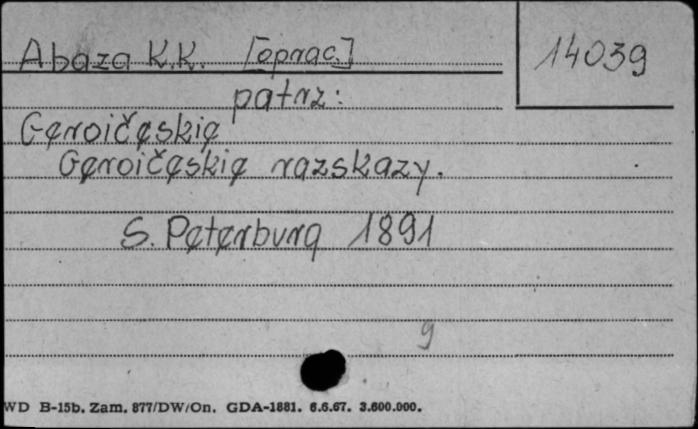 Abaza K.K. [oprac.]
14039
patrz:
Geroičeskie
Geroičeskie razskazy.
S. Peterburg 1891
9
WD B-15b. Zam. 877/DW/On. GDA-1881. 6.6.67. 3.600.000.